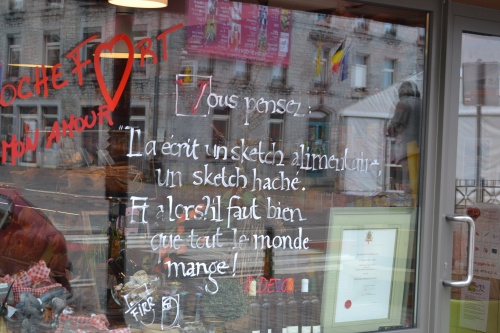 ROCHEFORT
MON AMOUR
Vous pensez :
"Il a écrit un sketch alimentaire,
un sketch haché.
Et alors? il faut bien
que tout le monde
mange!